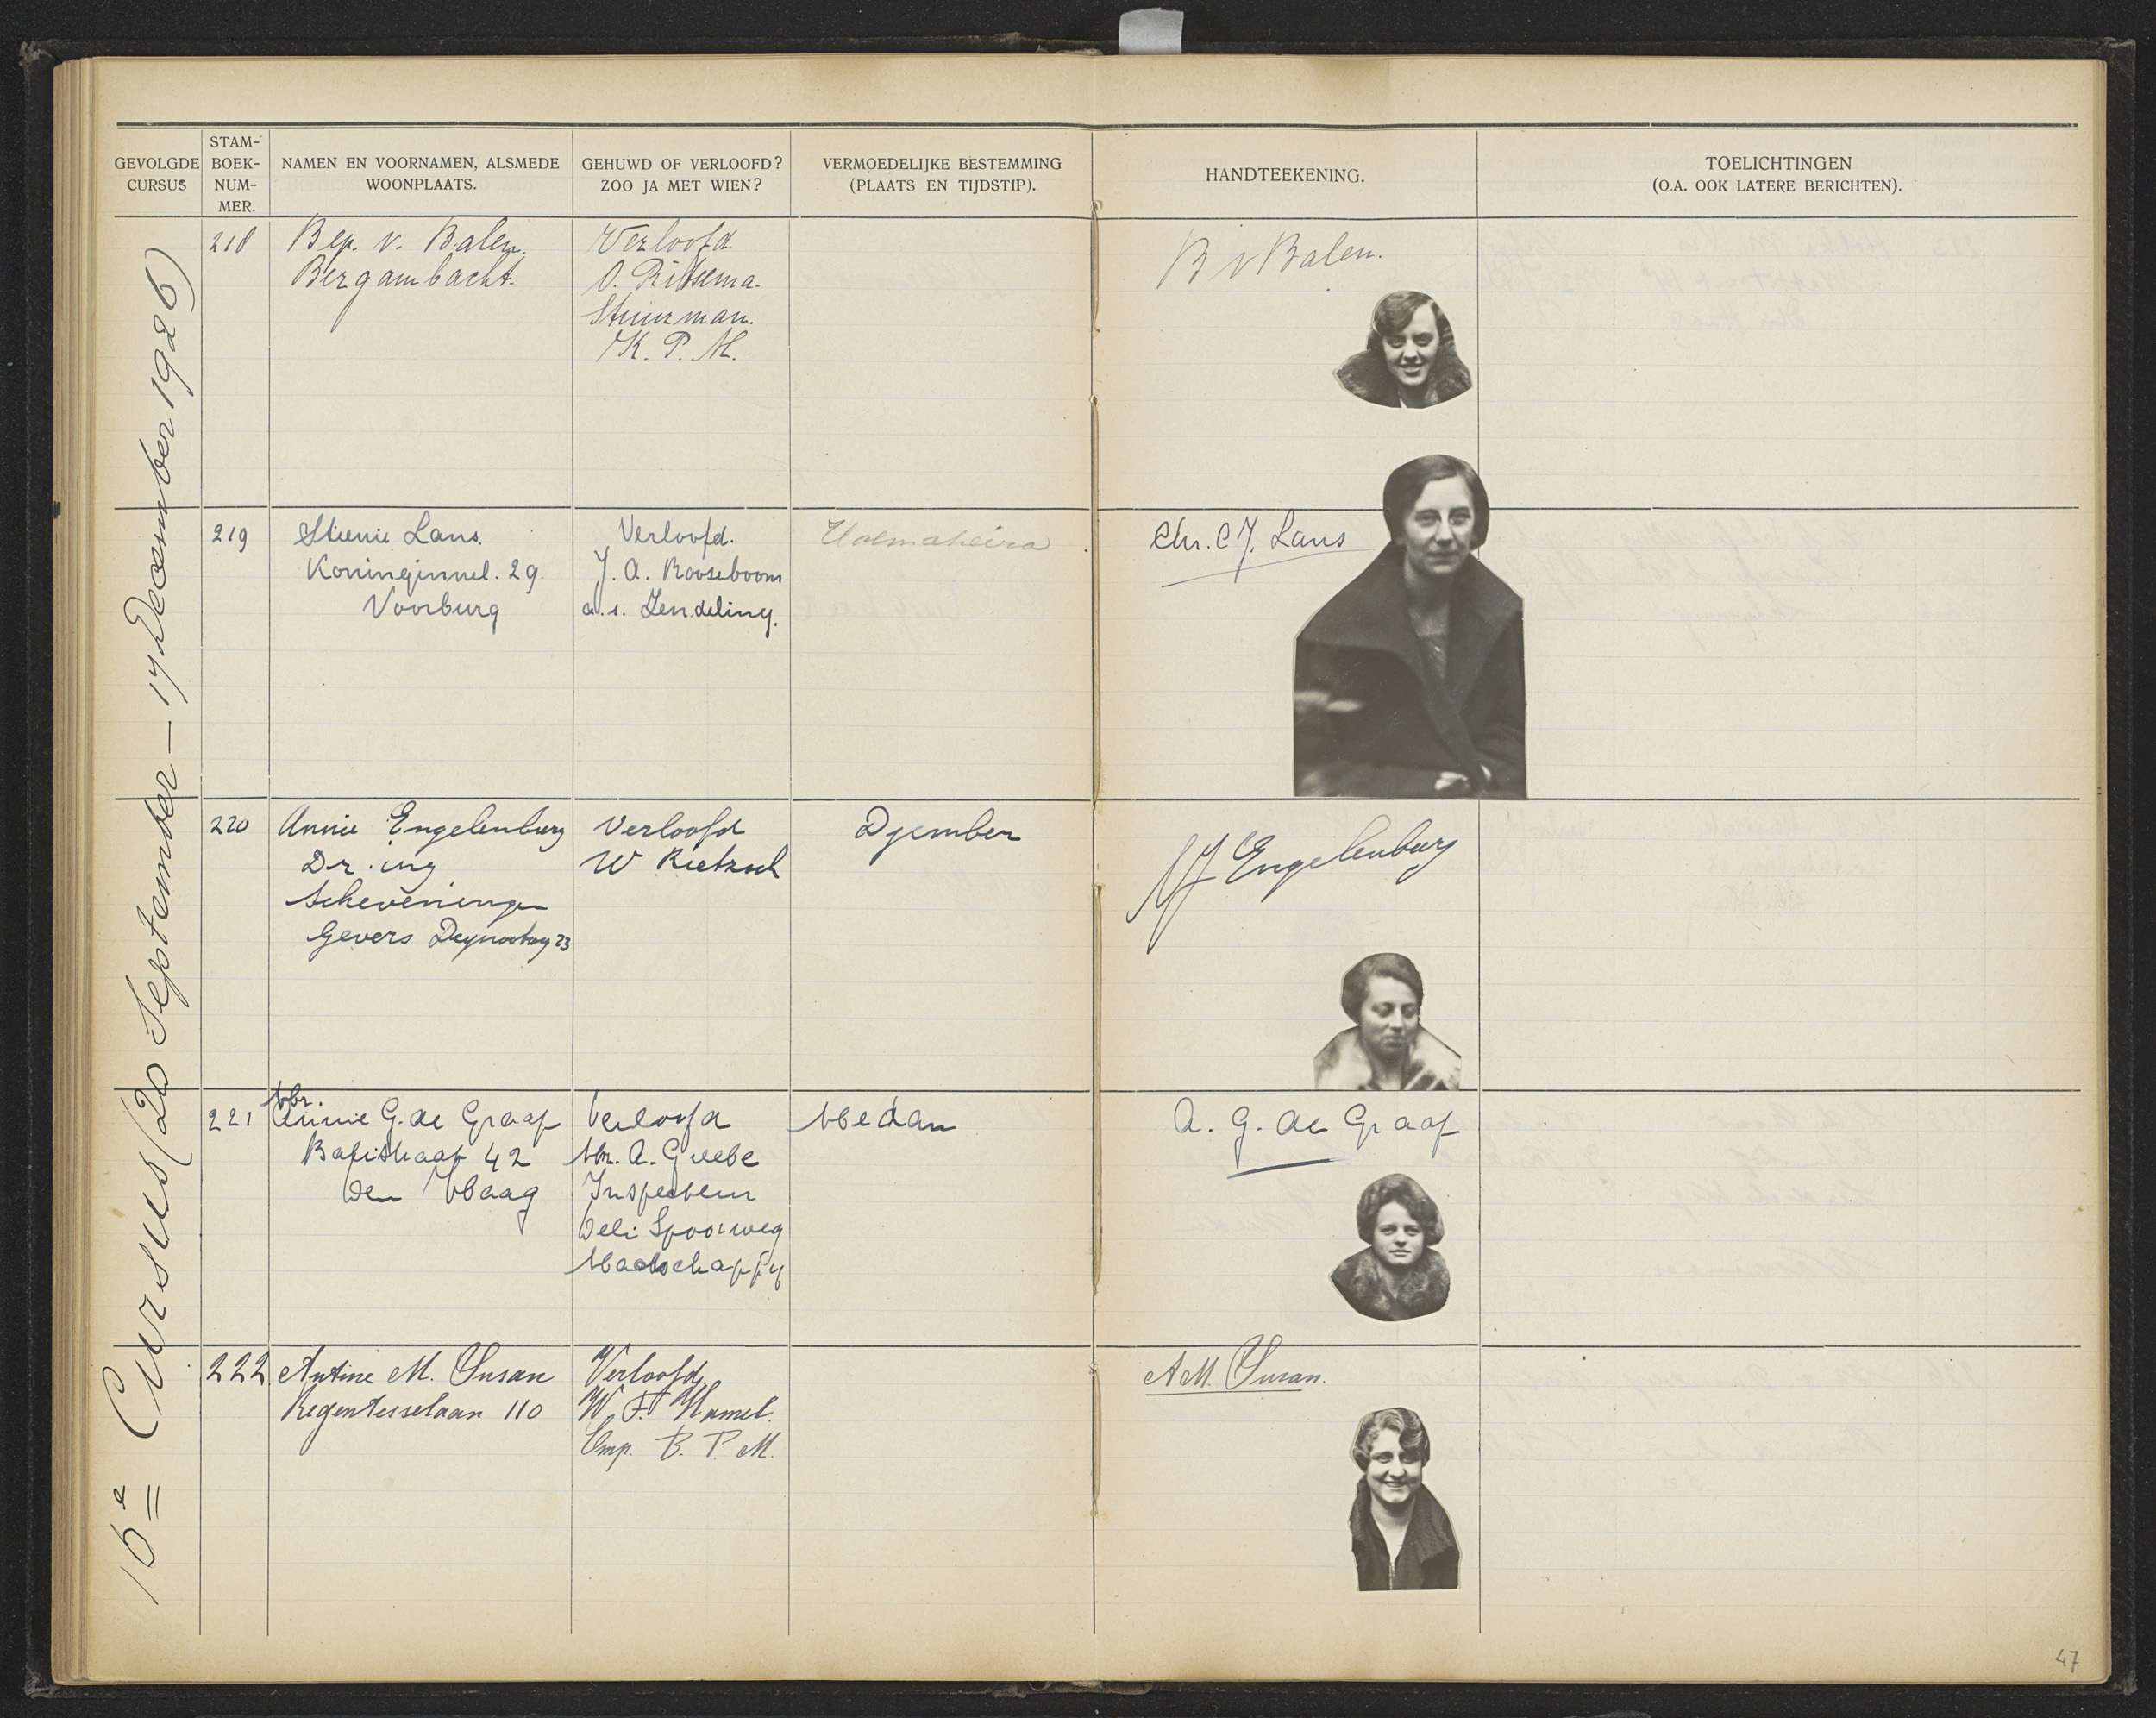 GEVOLGDE CURSUS
STAM-BOEK-NUM-MER.
NAMEN EN VOORNAMEN, ALSMEDE WOONPLAATS.
GEHUWD OF VERLOOFD? ZOO JA MET WIEN?
VERMOEDELIJKE BESTEMMING (PLAATS EN TIJDSTIP).
HANDTEEKENING.
TOELICHTINGEN (O.A. OOK LATERE BERICHTEN).
16e Cursus (20 September – 17 December 1926)
218
Bep. v. Balen.
Bergambacht.
Verloofd.
O. Ritsema.
Stuurman.
K. P. M.
B v Balen.
219
Stienie Lans.
Koninginnel. 29.
Voorburg
Verloofd.
J. A. Rooseboom
a.s. Zendeling.
Halmaheira
Chr. C J. Lans
220
Annie Engelenburg
Dr. ing
Scheveningen
Gevers Deynootweg 23
Verloofd
W
Djember
Engelenburg
221
Mej.
Annie G. de Graaf
42
Den Haag
Verloofd
A.
Inspecteur
Deli Spoorweg
Maatschappij
Medan
A. G. de Graaf
222
Antine M. Susan
Regentesselaan 110
Verloofd.
W. F. Hamel.
Emp. B. P. M.
A M. Susan.
47